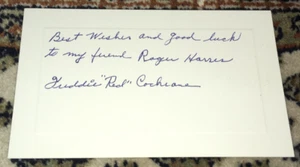 Best Wishes and good luck
to my friend Roger Harris
Freddie "Red" Cochrane